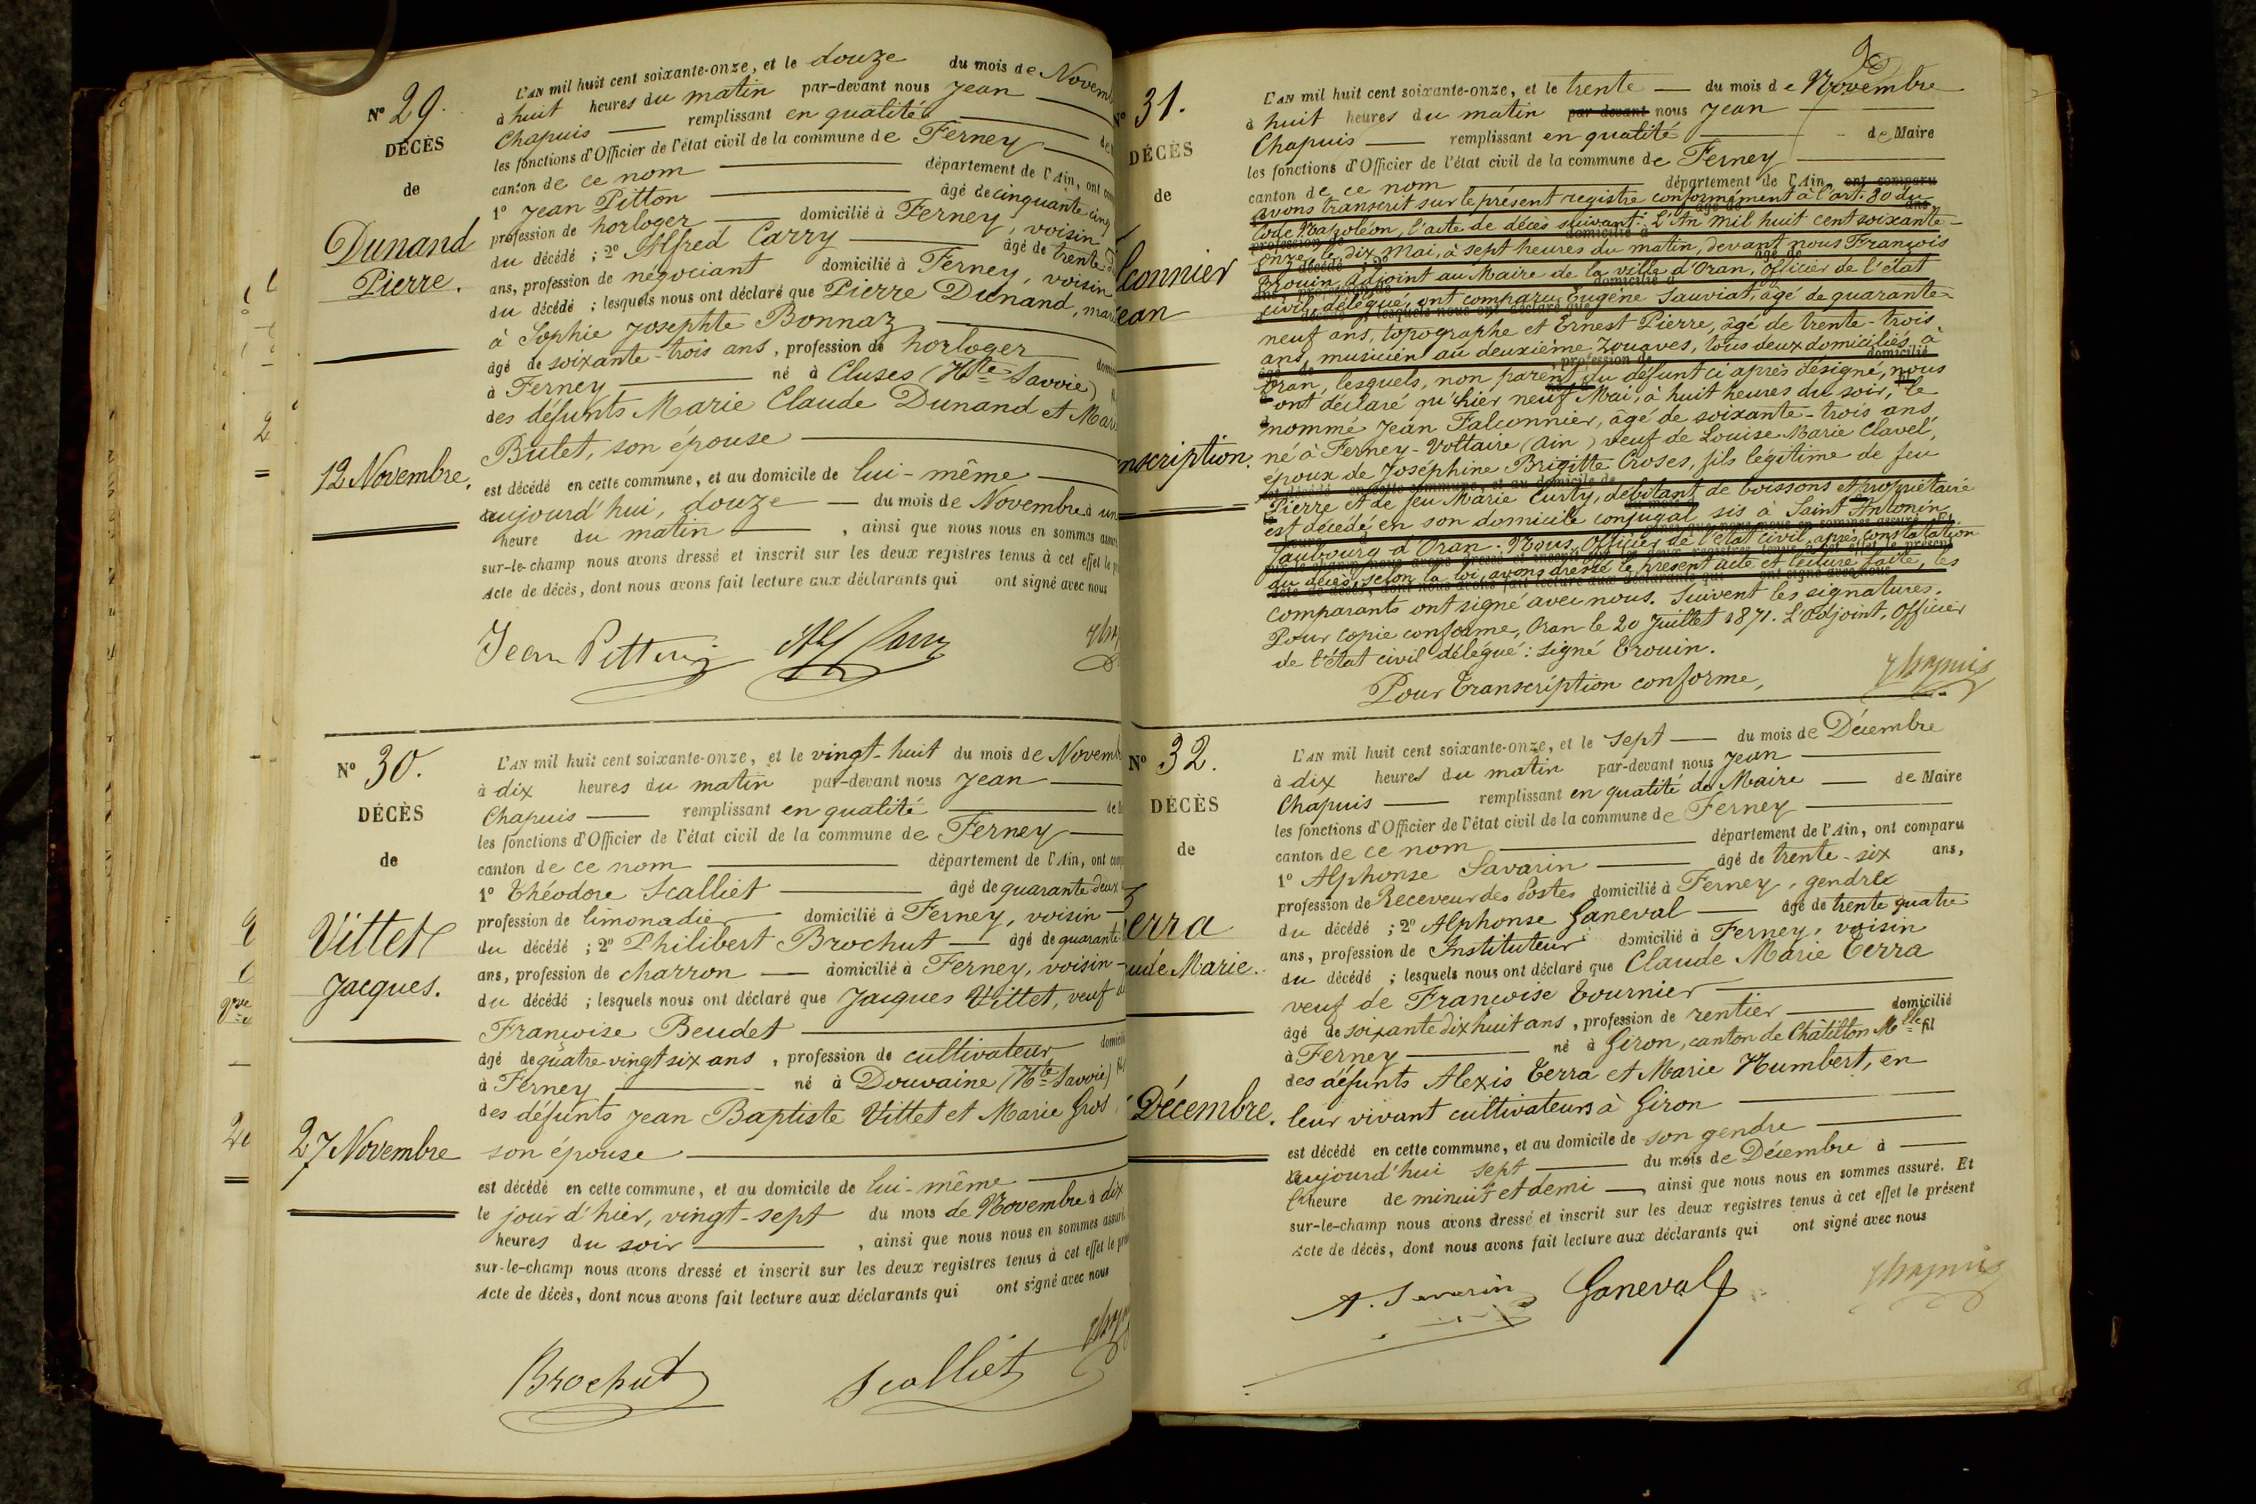 N° 29.
DÉCÈS
de
Dunand
Pierre.
12 Novembre.
L'AN mil huit cent soixante-onze, et le douze du mois de Novemb
à huit heures du matin par-devant nous Jean
Chapuis remplissant en qualité de
les fonctions d'Officier de l'état civil de la commune de Ferney
canton de ce nom département de l'Ain, ont com
1° Jean Pitton âgé de cinquante cinq
profession de horloger domicilié à Ferney, voisin
du décédé ; 2° Alfred Carry âgé de trente
ans, profession de négociant domicilié à Ferney, voisin
du décédé ; lesquels nous ont déclaré que Pierre Dunand, mari
à Sophie Josephte Bonnaz
âgé de soixante-trois ans, profession de horloger domici
à Ferney né à Cluses (Hte Savoie)
des défunts Marie Claude Dunand et Mari
Butet, son épouse
est décédé en cette commune, et au domicile de lui-même
aujourd'hui, douze du mois de Novembre à un
heure du matin , ainsi que nous nous en sommes assuré
sur-le-champ nous avons dressé et inscrit sur les deux registres tenus à cet effet le p
Acte de décès, dont nous avons fait lecture aux déclarants qui ont signé avec nous
Jean Pitton
N° 30.
DÉCÈS
de
Vittet
Jacques.
27 Novembre
L'AN mil huit cent soixante-onze, et le vingt-huit du mois de Novemb
à dix heures du matin par-devant nous Jean
Chapuis remplissant en qualité de
les fonctions d'Officier de l'état civil de la commune de Ferney
canton de ce nom département de l'Ain, ont comp
1° Théodore Scalliet âgé de quarante deux
profession de limonadier domicilié à Ferney, voisin
du décédé ; 2° Philibert Brochut âgé de quarante
ans, profession de charron domicilié à Ferney, voisin
du décédé ; lesquels nous ont déclaré que Jacques Vittet, veuf d
Françoise Beudet
âgé de quatre-vingt six ans, profession de cultivateur domicili
à Ferney né à Douvaine (Hte Savoie)
des défunts Jean Baptiste Vittet et Marie Gros
son épouse
est décédé en cette commune, et au domicile de lui-même
le jour d'hier, vingt-sept du mois de Novembre à dix
heures du soir , ainsi que nous nous en sommes assuré
sur-le-champ nous avons dressé et inscrit sur les deux registres tenus à cet effet le pré
Acte de décès, dont nous avons fait lecture aux déclarants qui ont signé avec nous
Brochut Scalliet
N° 31.
DÉCÈS
de
lconnier
ean
nscription.
L'AN mil huit cent soixante-onze, et le trente du mois de Novembre
à huit heures du matin par devant nous Jean
Chapuis remplissant en qualité de Maire
les fonctions d'Officier de l'état civil de la commune de Ferney
canton de ce nom département de l'Ain, ont comparu
avons transcrit sur le présent registre conformément à l'art. 80 du
Code Napoléon, l'acte de décès suivant: L'An mil huit cent soixante-
onze, le dix Mai, à sept heures du matin, devant nous François
Trouin, adjoint au Maire de la ville d'Oran, officier de l'état
civil, délégué, ont comparu Eugène Sauviat, âgé de quarante-
neuf ans, topographe et Ernest Pierre, âgé de trente-trois
ans, musicien au deuxième Zouaves, tous deux domiciliés à
Oran, lesquels, non parent du défunt ci après désigné, nous
ont déclaré qu'hier neuf Mai, à huit heures du soir, le
nommé Jean Falconnier, âgé de soixante-trois ans,
né à Ferney-Voltaire (Ain) veuf de Louise Marie Clavel,
époux de Joséphine Brigitte Croses, fils légitime de feu
Pierre et de feu Marie Curty, débitant de boissons et propriétaire
est décédé en son domicile conjugal sis à Saint Antonin
faubourg d'Oran. Nous, Officier de l'état civil, après constatation
du décès, selon la loi, avons dressé le présent acte et lecture faite, les
comparants ont signé avec nous. Suivent les signatures.
Pour copie conforme, Oran le 20 Juillet 1871. L'Adjoint, Officier
de l'état civil délégué : signé Trouin.
Pour Transcription conforme,
Chapuis
N° 32.
DÉCÈS
de
erra
ude Marie.
Décembre.
L'AN mil huit cent soixante-onze, et le sept du mois de Décembre
à dix heures du matin par-devant nous Jean
Chapuis remplissant en qualité de Maire de Maire
les fonctions d'Officier de l'état civil de la commune de Ferney
canton de ce nom département de l'Ain, ont comparu
1° Alphonse Savarin âgé de trente-six ans,
profession de Receveur des Postes domicilié à Ferney, gendre
du décédé ; 2° Alphonse Ganeval âgé de trente quatre
ans, profession de Instituteur domicilié à Ferney, voisin
du décédé ; lesquels nous ont déclaré que Claude Marie Terra
veuf de Françoise Tournier
âgé de soixante dix huit ans, profession de rentier domicilié
à Ferney né à Giron, canton de Châtillon Mlle fil
des défunts Alexis Terra et Marie Humbert, en
leur vivant cultivateurs à Giron
est décédé en cette commune, et au domicile de son gendre
aujourd'hui sept du mois de Décembre à
l'heure de minuit et demi , ainsi que nous nous en sommes assuré. Et
sur-le-champ nous avons dressé et inscrit sur les deux registres tenus à cet effet le présent
Acte de décès, dont nous avons fait lecture aux déclarants qui ont signé avec nous
A. Savarin Ganeval Chapuis